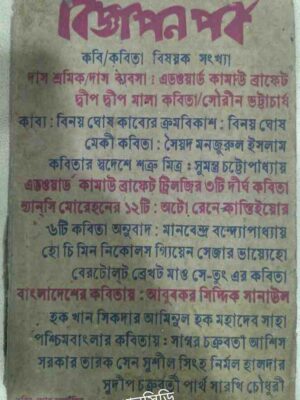 বিজ্ঞাপন পর্ব
কবি/কবিতা বিষয়ক সংখ্যা
দাস শ্রমিক/দাস ব্যবসা : এডওয়ার্ড কামাউ ব্রাফেট
দ্বীপ দ্বীপ মালা কবিতা/সৌরীন ভট্টাচার্য
কাব্য : বিনয় ঘোষ কাব্যের ক্রমবিকাশ : বিনয় ঘোষ
মেকী কবিতা : সৈয়দ মনজুরুল ইসলাম
কবিতার স্বদেশে শত্রু মিত্র : সুমন্ত চট্টোপাধ্যায়
এডওয়ার্ড কামাউ ব্রাফেট ট্রিলজির ৩টি দীর্ঘ কবিতা
ন্যান্সি মোরেহনের ১২টি : অটো রেনে কাস্তিইয়োর
৬টি কবিতা অনুবাদ : মানবেন্দ্র বন্দ্যোপাধ্যায়
হো চি মিন নিকোলস গ্যিয়েন সেজার ভায়্যেহো
বেরটোলট ব্রেখট মাও সে-তুং এর কবিতা
বাংলাদেশের কবিতায় : আবুবকর সিদ্দিক সানাউল
হক খান সিকদার আমিনুল হক মহাদেব সাহা
পশ্চিমবাংলার কবিতায় : সাগর চক্রবর্তী আশিস
সরকার তারক সেন সুশীল সিংহ নির্মল হালদার
সুদীপ চক্রবর্তী পার্থ সারথি চৌধুরী